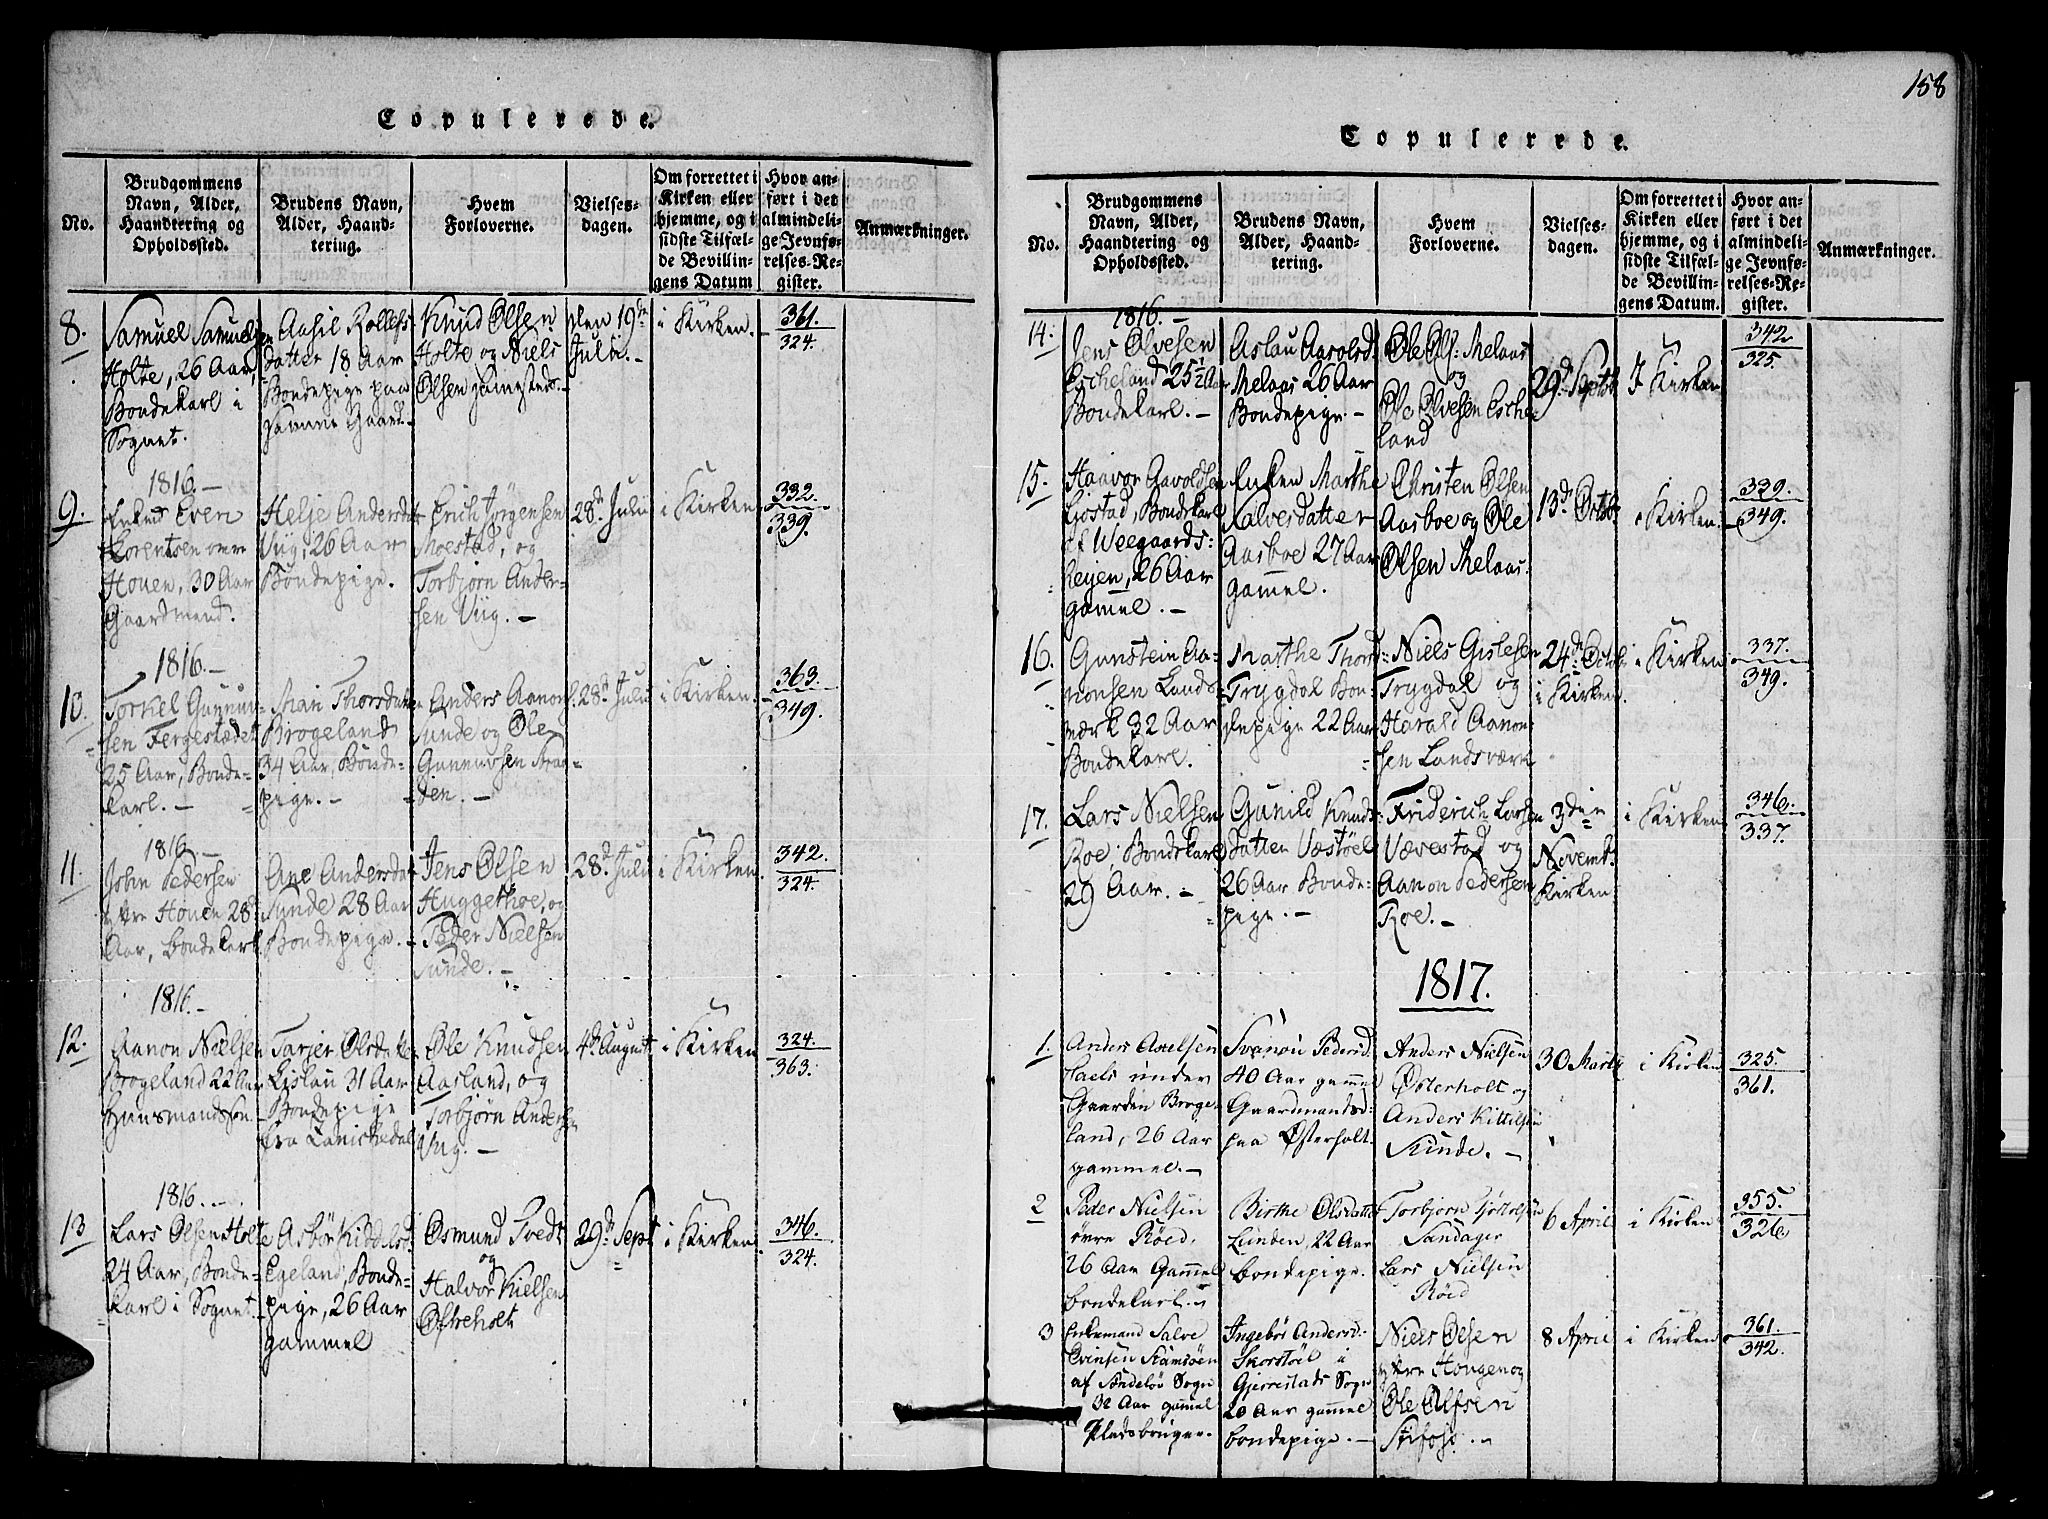 Copulerede.
No.
Brudgommens
Navn, Alder,
Haandtering og
Opholdssted.
Brudens Navn,
Alder, Haand-
tering.
Hvem
Forloverne.
Vielses-
dagen.
Om forrettet i
Kirken eller
hjemme, og i
sidste Tilfæl-
de Bevillin-
gens Datum
Hvor an-
ført i det
almindeli-
ge Jevnfø-
relses-Re-
gister.
Anmærkninger.
8.
Samuel Samuelsen
Holte, 26 Aar,
Bondekarl i
Sognet.
Aasil Rollefs
datter 18 Aar
Bondepige paa
samme Gaard.
Knud Olsen
Holte og Niels
Olsen
Den 19de
Julii.
i Kirken.
361.
324.
1816.
9.
Enkem Even
Lorentsen øvre
Houen, 30 Aar
Gaardmand.
Helje Andersdat
Viig, 26 Aar
Bondepige.
Erich Jørgensen
Moestad, og
Torbjørn Ander-
sen Viig.
28d Julii
i Kirken
332.
339.
1816.
10.
Torkel Gunnun-
sen Fergestædet
25 Aar, Bonde-
karl.
Mari Thorsdatter
Brogeland
34 Aar, Bonde-
pige.
Anders Aanons.
Sunde og Ole
Gunnuvsen
den.
28d Julii
i Kirken.
363.
349.
1816.
11.
John Pedersen
øvre Houen 28
Aar, bondekarl
Ane Andersdat
Sunde 28 Aar
Bondepige.
Jens Olsen
Huggethoe, og
Peder Nielsen
Sunde.
28d Julii
i Kirken
342.
324.
1816.
12.
Aanon Nielsen
Brogeland 22 Aar
Huusmandssøn.
Tarjer Olsdatter
Lislau 31 Aar
Bondepige
fra Canichedal
Ole Knudsen
Aasland, og
Torbjørn Andersen
Viig.
4d August
i Kirken
324.
363.
1816.
13
Lars Olsen Holte
24 Aar, Bonde-
karl i Sognet.
Asbør Kiddelsd
Egeland, Bonde-
pige, 26 Aar
gammel
Osmund Tvedt
og
Halvor Nielsen
Østreholt
29d Sept
i Kirken
346.
324.
158
Copulerede.
No.
Brudgommens
Navn, Alder,
Haandtering og
Opholdssted.
Brudens Navn,
Alder, Haand-
tering.
Hvem
Forloverne.
Vielses-
dagen.
Om forrettet i
Kirken eller
hjemme, og i
sidste Tilfæl-
de Bevillin-
gens Datum.
Hvor an-
ført i det
almindeli-
ge Jevnfø-
relses-Re-
gister.
Anmærkninger.
1816.
14.
Jens Olvesen
Escheland 25½ Aar
Bondekarl.
Aslau Aavolsd.
Melaas 26 Aar
Bondepige
Ole Ols. Melaas
og
Ole Olvesen Esche
land
29d Septb
I Kirken
342
325.
15.
Haavor Aavoldsen
Giostad, Bondekarl
af Weegaards-
heyen, 26 Aar
gamel.
Enken Marthe
Salvesdatter
Aasboe 27 Aar
gammel.
Christen Olsen
Aasboe og Ole
Olsen Melaas.
13d Octb
i Kirken.
339.
349.
16.
Gunstein Aa-
nonsen Lands-
værk 32 Aar
Bondekarl.
Marthe Thorsd
Trygdal Bon-
depige 22 Aar
Niels Gislesen
Trygdal og
Harald Aanon-
sen Landsværk
24d Octob
i Kirken.
i Kirken
337.
349.
17.
Lars Nielsen
Roe, Bondekarl
29 Aar.
Gunild Knuds-
datter Væstøel
26 Aar Bonde-
pige.
Friderich Larsen
Vævestad og
Aanon Pedersen
Roe.
3die
Novemb.
Kirken.
i Kirken
346.
337.
1817.
1.
Anders Axelsen
Saels under
Gaarden Broge-
land, 26 Aar
gammel.
Svanou Pedersd.
40 Aar gammel
Gaardmandsd.
paa Østerholt.
Anders Nielsen
Østerholt og
Anders Kittilsen
Sunde.
30 Marty
i Kirken
325.
361.
2
Peder Nielsen
øvre Röed,
26 Aar Gammel
bondekarl.
Birthe Olsdatter
Lunden, 22 Aar
bondepige.
Torbjørn Tjöstolsen
Sandager
Lars Nielsen
Röed
6 April
i Kirken
355.
326
3
Enkemand Salve
Evinsen Stamsöen
af Söndeløv Sogn
32 Aar gammel
Pladsbruger.
Ingebör Andersd.
Skorstöel i
Gjerrestads Sogn
20 Aar gammel
bondepige.
Niels Olsen
øvre Hougen og
Ole Olfsen
Stifose.
8 April
i Kirken
361.
342.